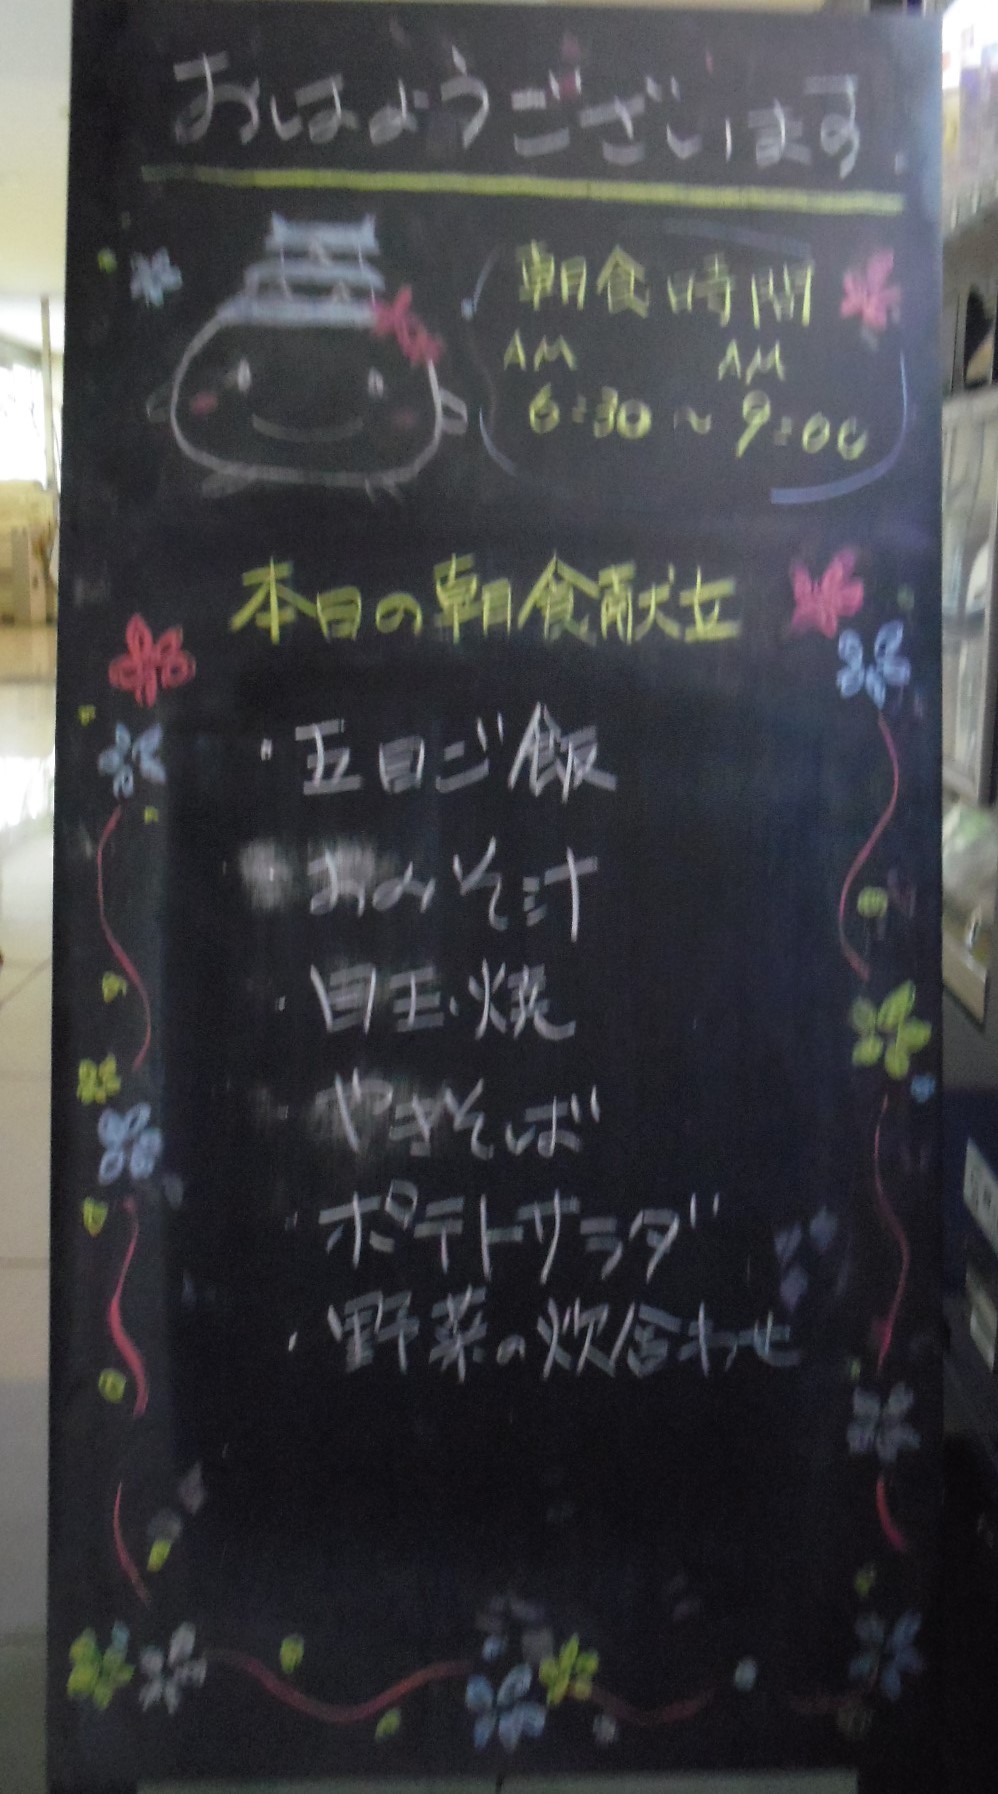 おはようございます
朝食時間
AM AM
6:30 〜 9:00
本日の朝食献立
・五目ご飯
・おみそ汁
・目玉焼
・やきそば
・ポテトサラダ
・野菜の炊合わせ